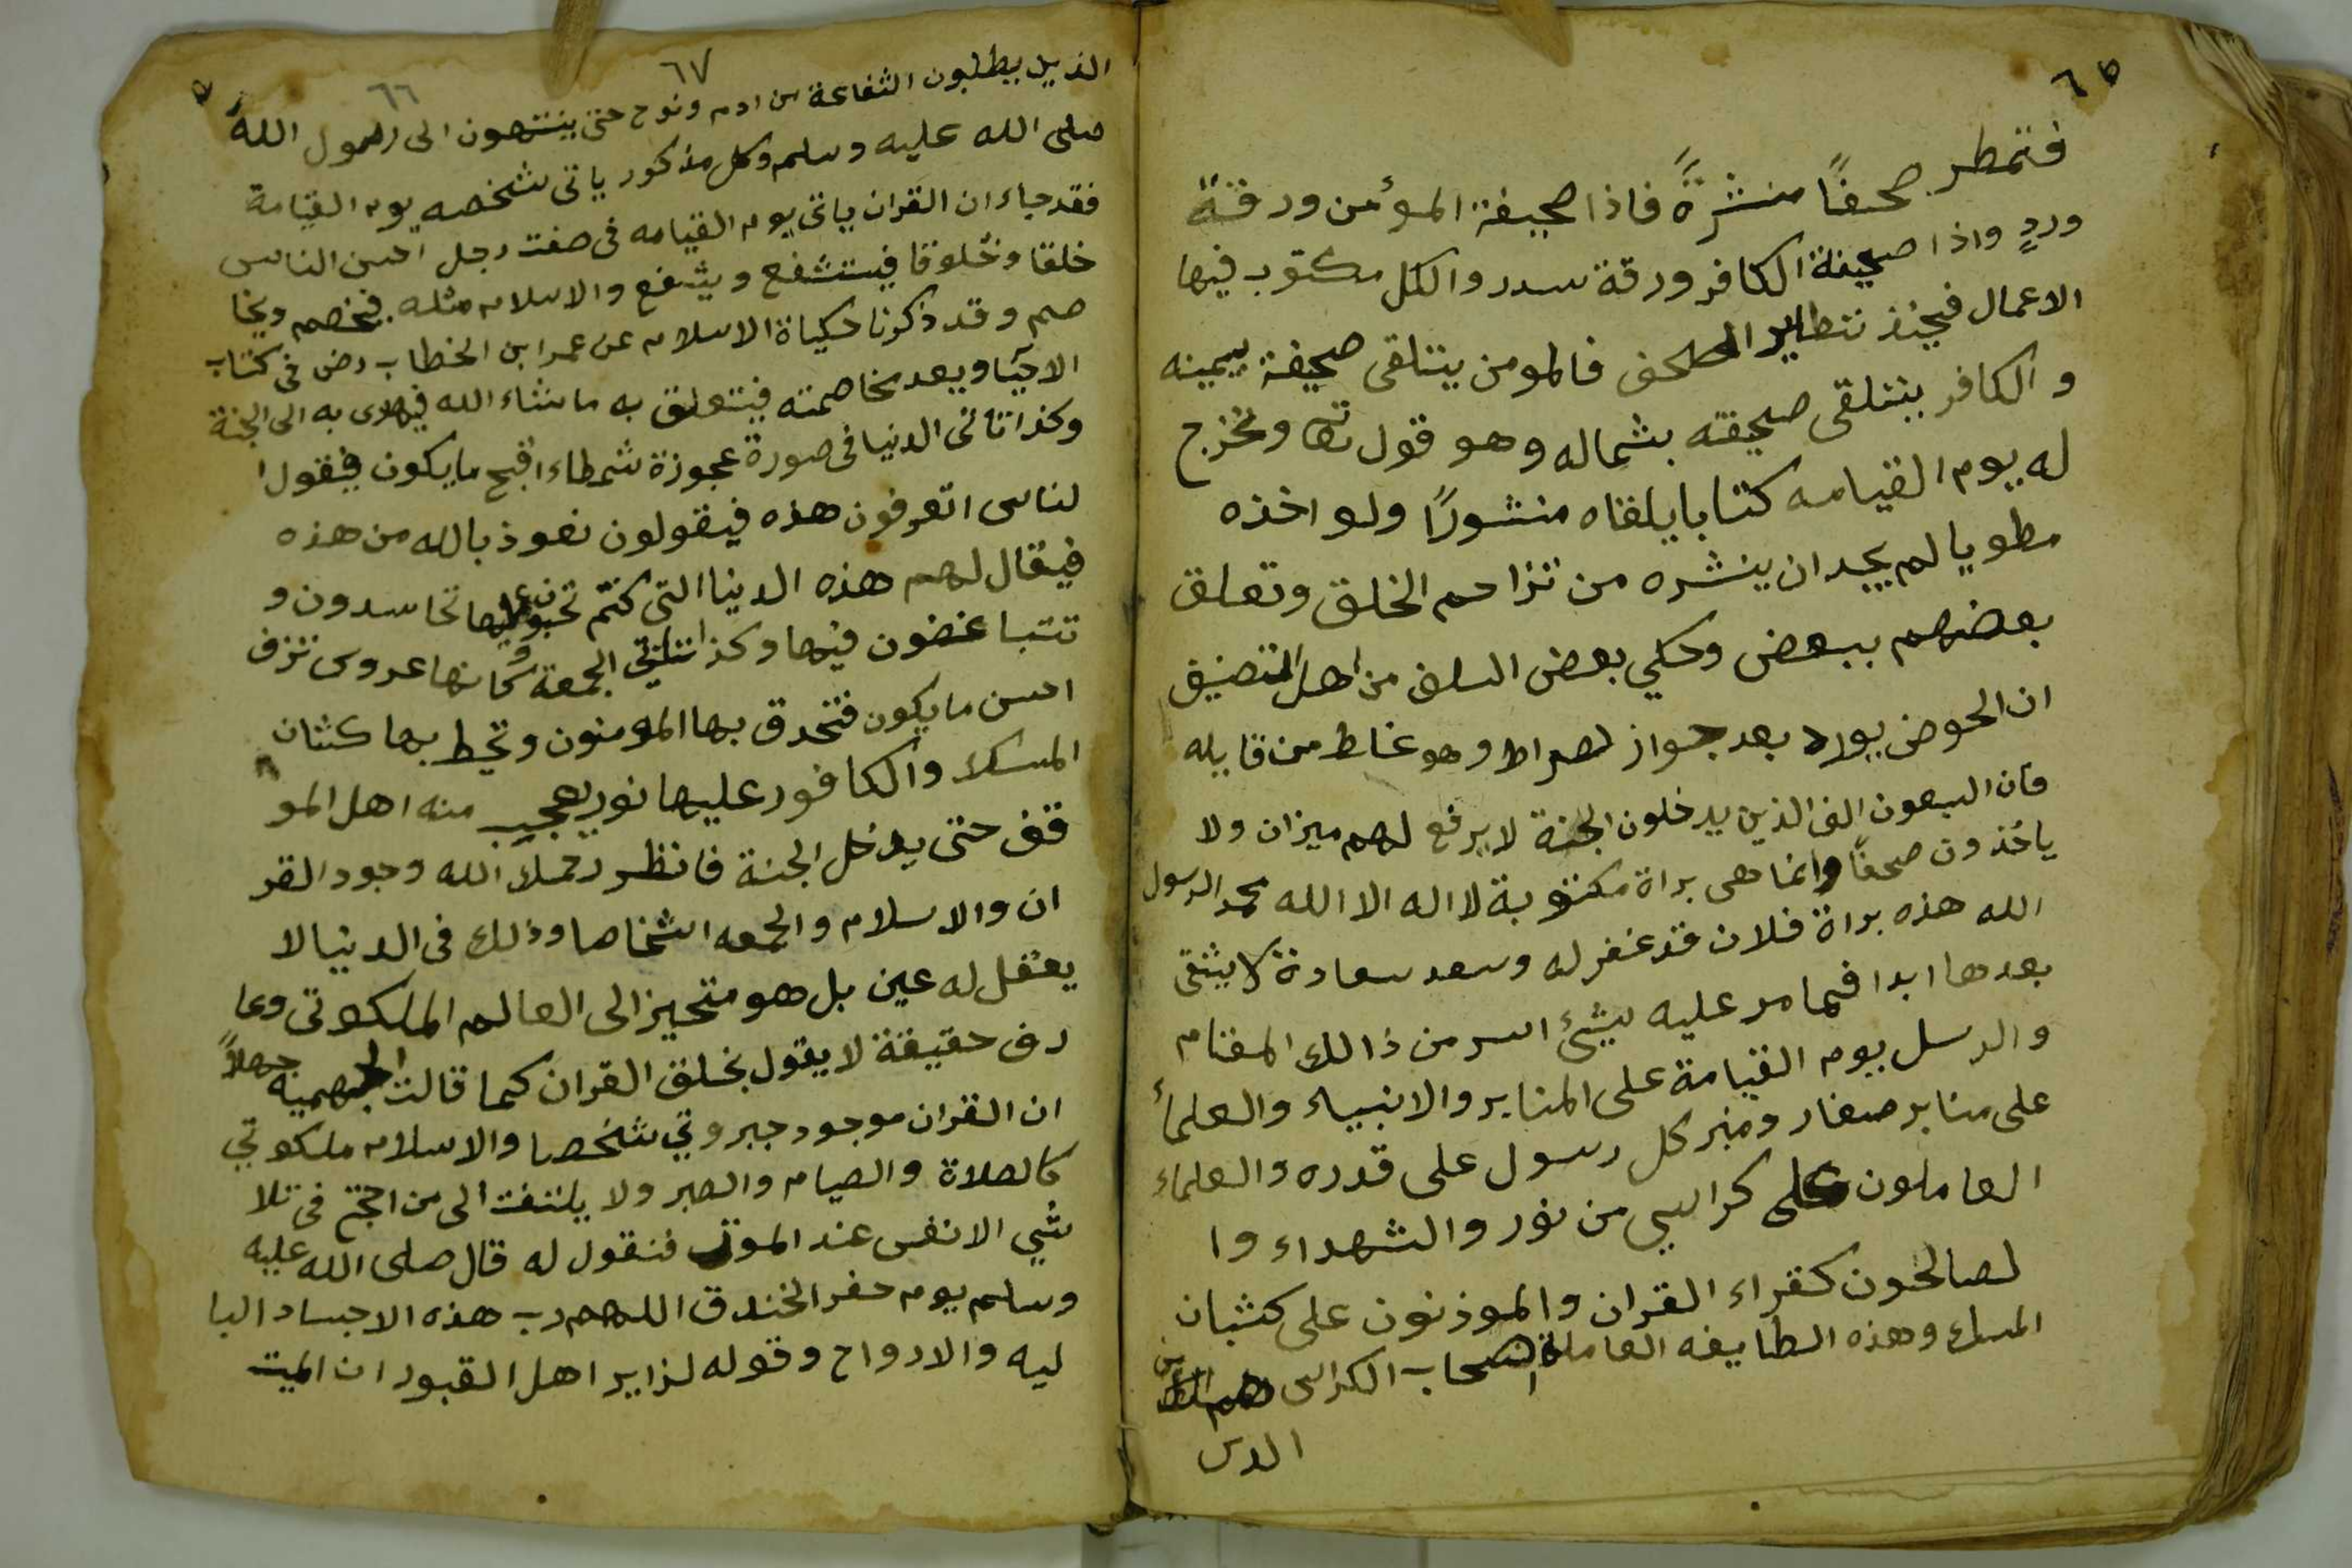 ٦٥
فتمطر صحفًا منشرةً فاذا صحيفة المؤمن ورقة
وردٍ واذا صحيفة الكافر ورقة سدر والكل مكتوب فيها
الاعمال فحينذ تتطاير الصحف فالمومن يتلقى صحيفة بيمينه
و الكافر يتلقى صحيفته بشماله وهو قول تعا ونخرج
له يوم القيامه كتابا يلقاه منشورًا ولو اخذه
مطويا لم يجد ان ينشره من تزاحم الخلق وتعلق
بعضهم ببعض وحكي بعض السلف من اهل التصنيف
ان الحوض يورد بعد جواز لصراط وهو غلط من قايله
فان السبعون الف الذين يدخلون الجنة لا يرفع لهم ميزان ولا
ياخذون صحفًا وانما هى براة مكتوبة لا اله الا الله محمد الرسول
الله هذه براة فلان قد غفر له وسعد سعادة لا يشقى
بعدها ابدا فما مر عليه بشئ اسر من ذالك المقام
و الرسل يوم القيامة على المنابر والانبياء والعلمأ
على منابر صغار ومنبر كل رسول على قدره والعلماء
العاملون على كراسي من نور والشهداء وا
لصالحون كقراء القران والموذنون على كثبان
المسك وهذه الطايفه العاملة اصحاب الكراسى هم
٦٧
٦٦
الذين يطلبون الشفاعة من ادم ونوح حتى ينتهون الى رسول الله
صلى الله عليه وسلم وكل مذكور ياتى شخصه يوم القيامة
فقد جاء ان القران ياتى يوم القيامه فى صفت رجل احسن الناس
خلقا وخلوقا فيستشفع ويشفع والاسلام مثله فيخصم ويخا
صم وقد ذكرنا حكياة الاسلام عن عمر ابن الخطاب رض فى كتاب
الاحيا وبعد مخاصمته فيتعلق به ما شاء الله فيهدى به الى الجنة
وكذا تاتى الدنيا فى صورة عجوزة شمطاء اقبح ما يكون فيقول ا
لناس اتعرفون هذه فيقولون نعوذ بالله من هذه
فيقال لهم هذه الدنيا التى كنتم تحبون عليها تحاسدون و
تتباغضون فيها وكذا تاتي الجمعة كانها عروس تزف
احسن ما يكون فتحدق بها المومنون وتحيط بها كثبان
المسك والكافور عليها نور يعجب منه اهل المو
قف حتى يدخل الجنة فانظر رحمك الله وجود القر
ان والاسلام والجمعه اشخاصا وذلك فى الدنيا لا
يعقل له عين بل هو متحيز الى العالم الملكوتى وعا
رف حقيقة لا يقول بخلق القران كما قالت الجهمية جهلاً
ان القران موجود جبروتي شخصا والاسلام ملكوتي
كالصلاة والصيام والصبر ولا يلتفت الى من احتج فى تلا
شي الانفس عند الموت فنقول له قال صلى الله عليه
وسلم يوم حفر الخندق اللهم رب هذه الاجساد البا
ليه والارواح وقوله لزاير اهل القبور ان الميت